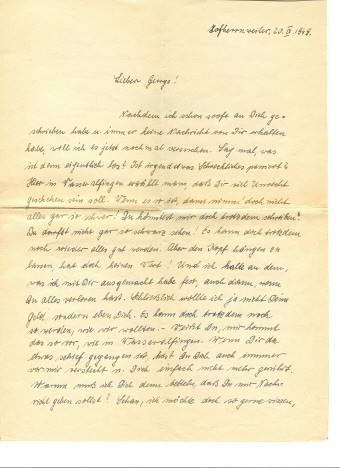 Hofherrnweiler, 20. IX. 1948.
Lieber Georg!
Nachdem ich schon so oft an Dich ge-
schrieben habe u. immer keine Nachricht von Dir erhalten
habe, will ich es jetzt nochmal versuchen. Sag mal, was
ist denn eigentlich los? Ist irgendetwas Schreckliches passiert?
Hier in Wasseralfingen erzählt man, daß Dir viel Unrecht
geschehen sein soll. Wenn es so ist, dann nimm doch nicht
alles gar so schwer! Du könntest mir doch trotzdem schreiben.
Du darfst nicht gar so schwarz sehen! Es kann doch trotzdem
noch wieder alles gut werden. Aber den Kopf hängen zu
lassen, hat doch keinen Wert! Und ich halte an dem,
was ich mit Dir ausgemacht habe fest, auch dann, wenn
Du alles verloren hast. Schließlich wollte ich ja nicht Dein
Geld, sondern eben Dich. Es kann doch trotzdem noch
so werden, wie wir wollten. - Weißt Du, mir kommt
das so vor, wie in Wasseralfingen. Wenn Dir da
etwas schief gegangen ist, hast Du Dich auch immer
vor mir versteckt u. Dich einfach nicht mehr gerührt.
Warum muß ich Dich denn betteln, daß Du mir Nach-
richt geben sollst? Schau, ich möchte doch so gerne wissen,